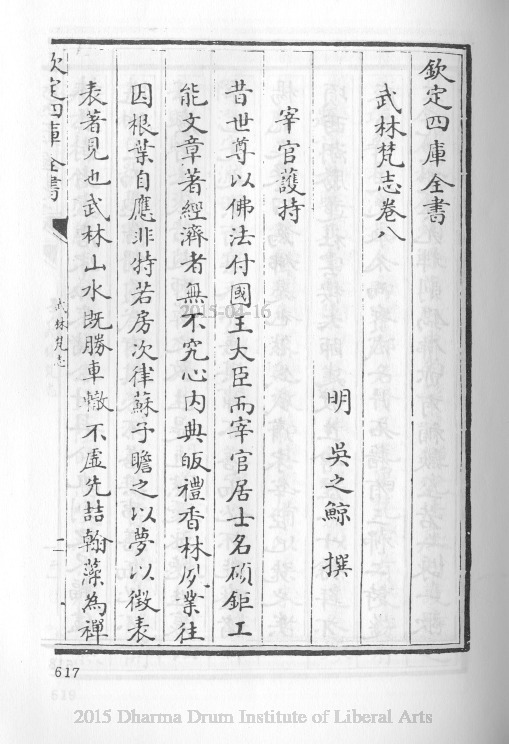 欽定四庫全書
武林梵志卷八
明 吳之鯨 撰
宰官護持
昔世尊以佛法付國王大臣而宰官居士名碩鉅工
能文章著經濟者無不究心內典皈禮香林夙業往
因根葉自應非特若房次律蘇子瞻之以夢以徵表
表著見也武林山水既勝車轍不虛先喆翰藻為禪
欽定四庫全書
武林梵志
一
617
2015-04-16
2015 Dharma Drum Institute of Liberal Arts